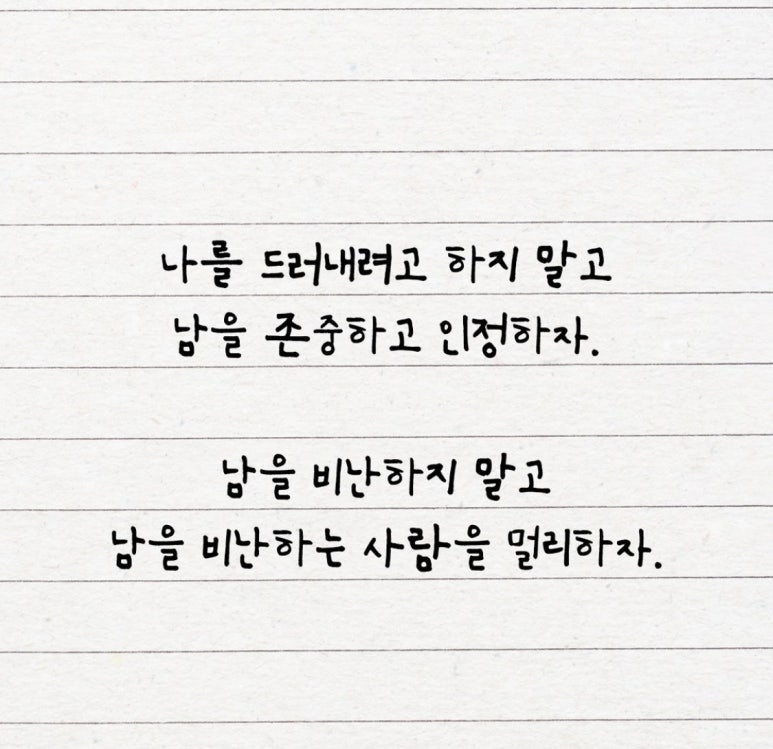 나를 드러내려고 하지 말고
남을 존중하고 인정하자.
남을 비난하지 말고
남을 비난하는 사람을 멀리하자.